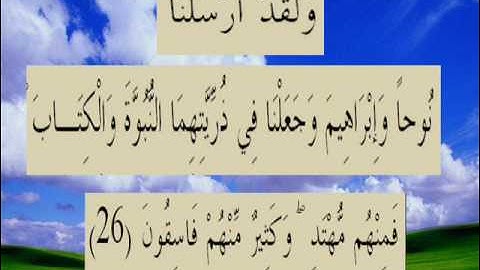 وَلَقَدْ أَرْسَلْنَا
نُوحاً وَإِبْرَاهِيمَ وَجَعَلْنَا فِي ذُرِّيَّتِهِمَا النُّبُوَّةَ وَالْكِتَـــابَ
فَمِنْهُم مُّهْتَدٍ ۖ وَكَثِيرٌ مِّنْهُمْ فَاسِقُونَ (26)